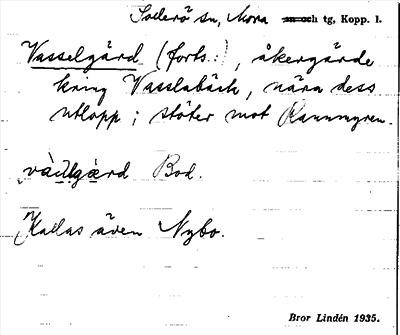 Soderö sn, Mora och tg, Kopp. l.
Vasselgärd (forts.:), åkergärde
kring Vasslabäck, nära dess
utlopp; stöter mot Kannmyren.
Bod.
Kallas även Nybo.
Bror Lindén 1935.